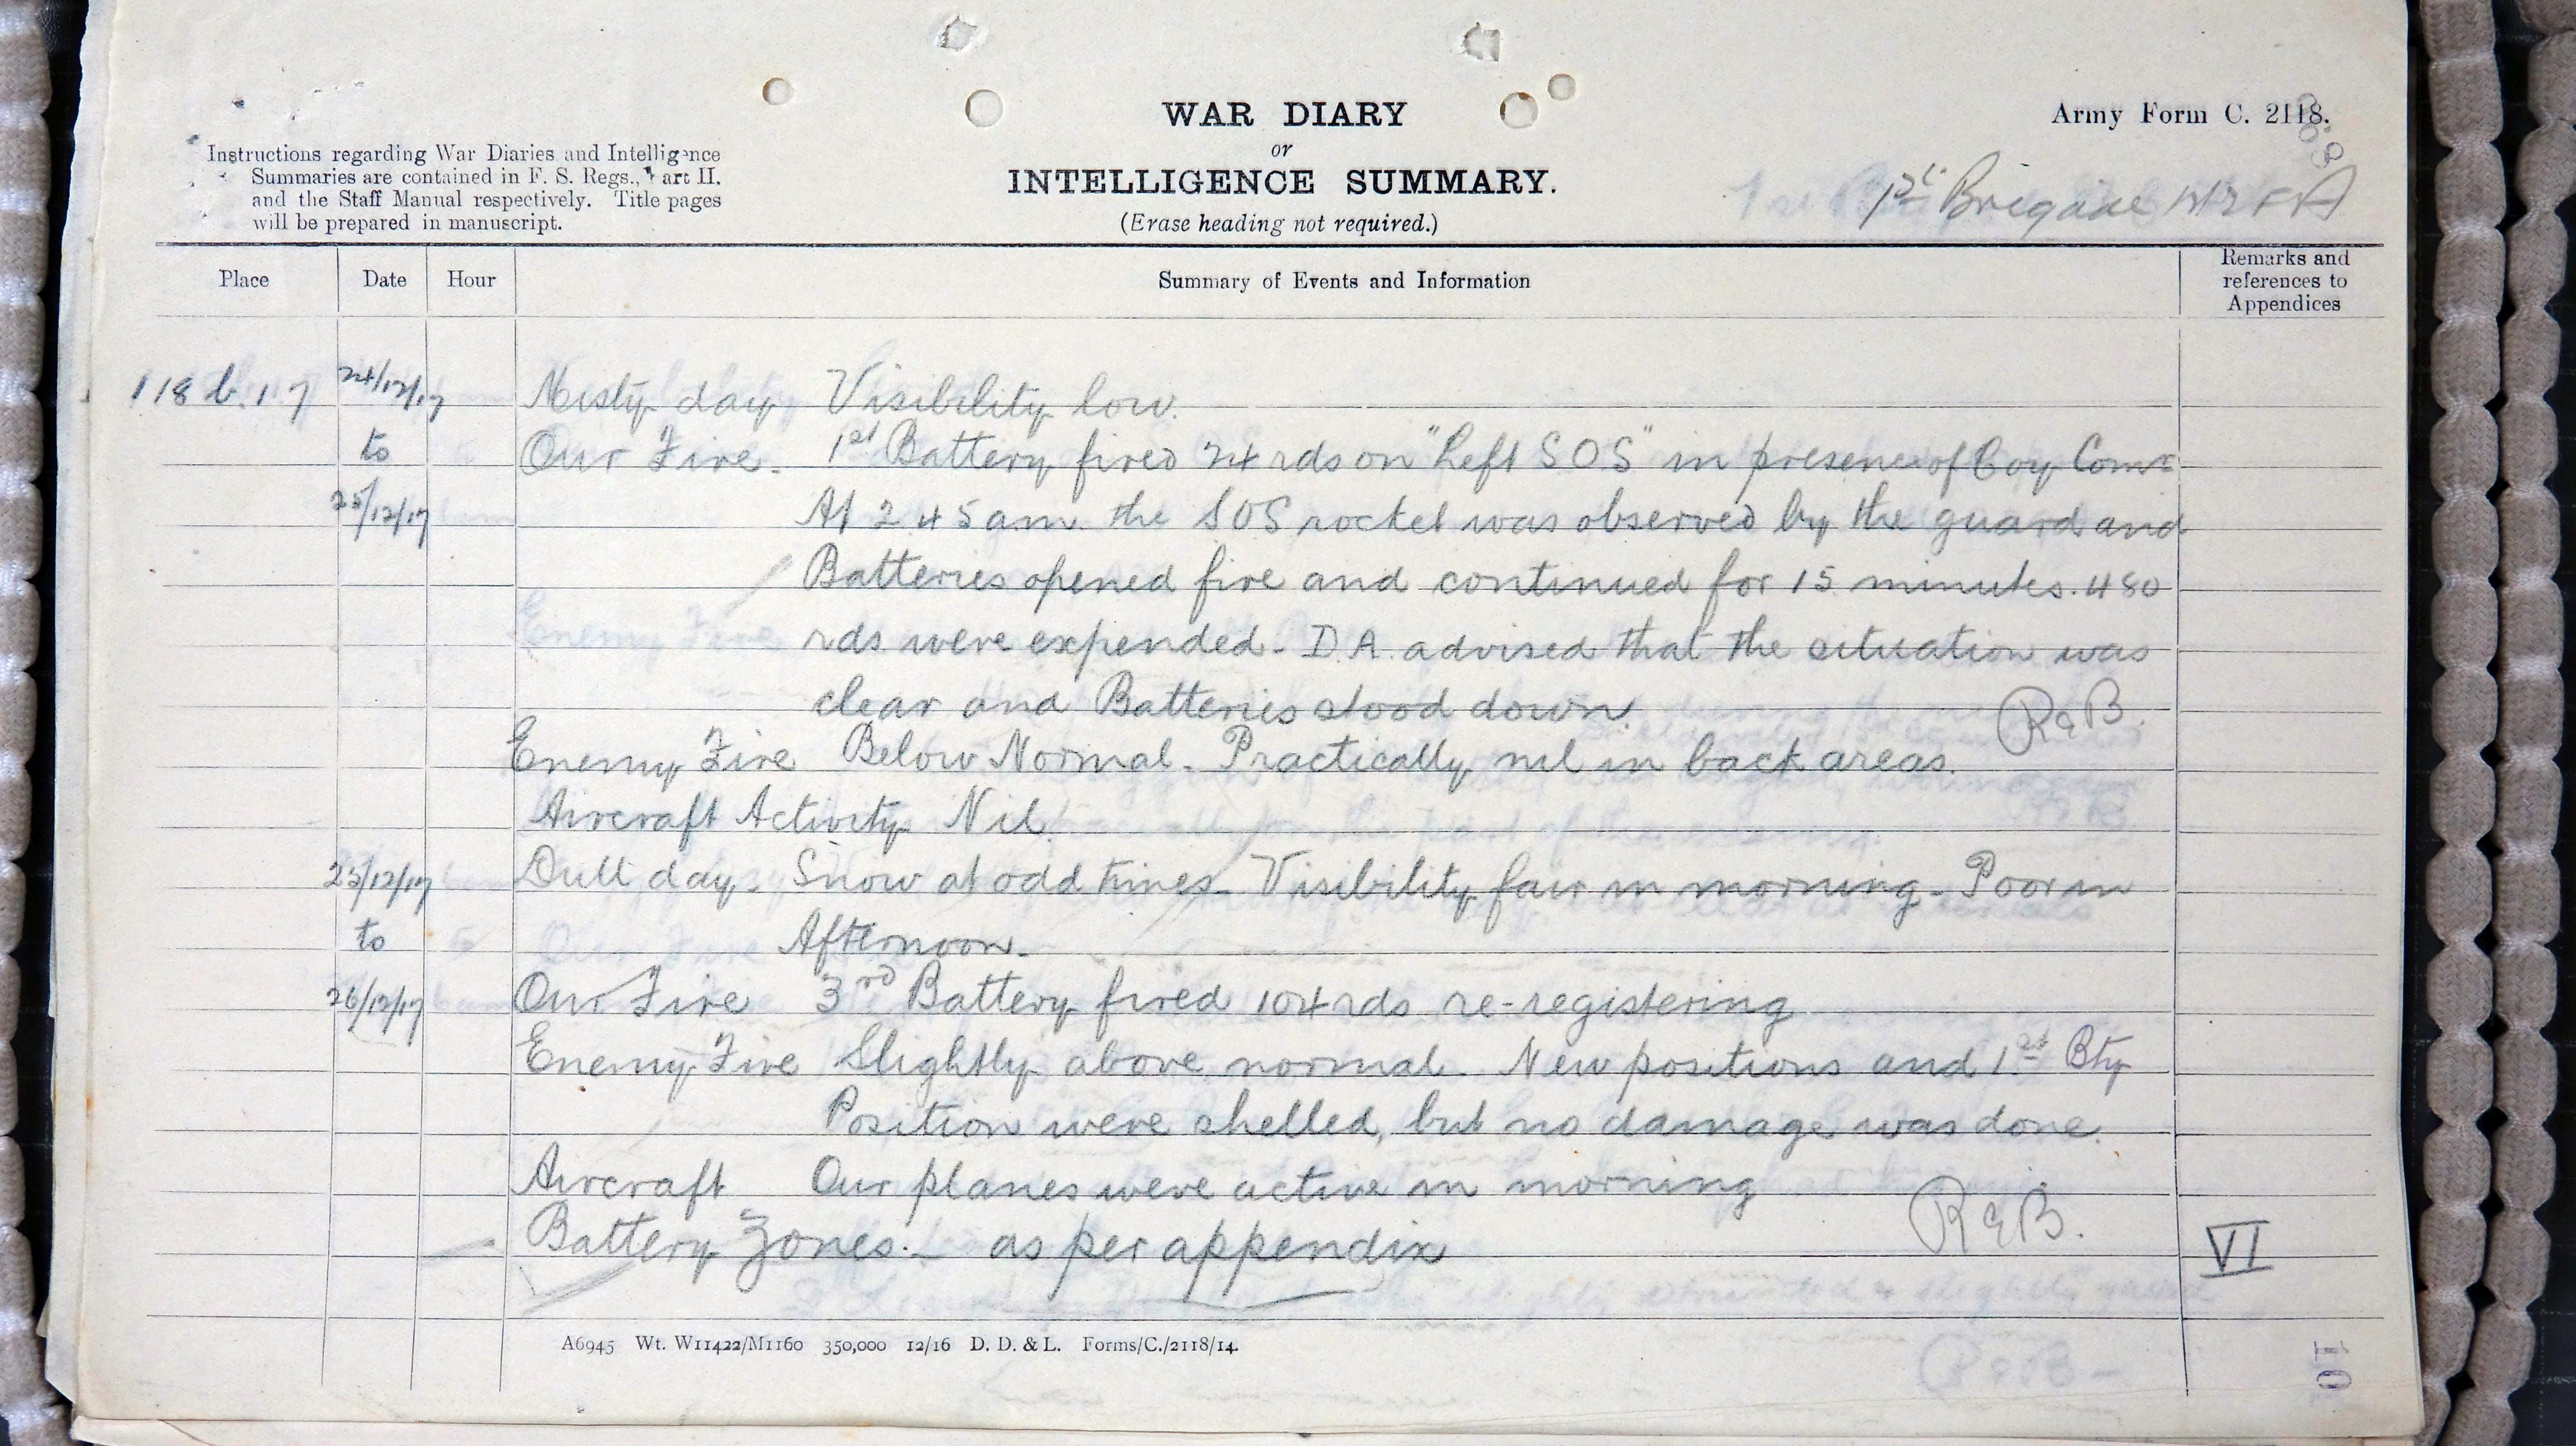 WAR DIARY
or
INTELLIGENCE SUMMARY.
(Erase heading not required.)
Instructions regarding War Diaries and Intelligence
Summaries are contained in F. S. Regs., Part II.
and the Staff Manual respectively. Title pages
will be prepared in manuscript.
Army Form C. 2118.
1st Brigade NZFA
Place Date Hour Summary of Events and Information Remarks and
references to
Appendices
118 b. 1 7 24/12/17 Misty day Visibility low.
to Our Fire - 1st Battery fired 24 rds on "Left SOS" in presence of Coy Comr
25/12/17 At 2 45 am the SOS rocket was observed by the guard and
Batteries opened fire and continued for 15 minutes. 480
rds were expended - D.A. advised that the situation was
clear and Batteries stood down.
Enemy Fire Below Normal - Practically nil in back areas.
Aircraft Activity Nil.
25/12/17 Dull day - Snow at odd times - Visibility fair in morning - Poor in
to Afternoon -
26/12/17 Our Fire 3rd Battery fired 104 rds re-registering
Enemy Fire Slightly above normal - New positions and 1st Bty
Position were shelled, but no damage was done.
Aircraft Our planes were active in morning
Battery Zones. - as per appendix VI
A6945 Wt. W11422/M1160 350,000 12/16 D. D. & L. Forms/C./2118/14.
10